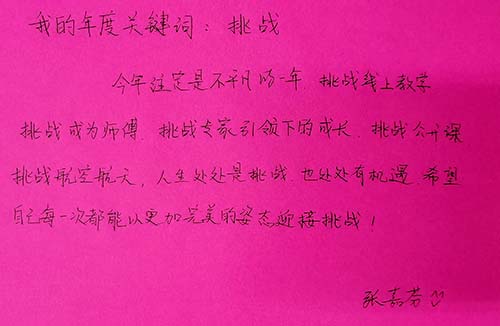 我的年度关键词：挑战
今年注定是不平凡的一年 挑战线上教学
挑战成为师傅 挑战专家引领下的成长 挑战公开课
挑战航空航天，人生处处是挑战 也处处有机遇 希望
自己每一次都能以更加完美的姿态迎接挑战！
张嘉芬